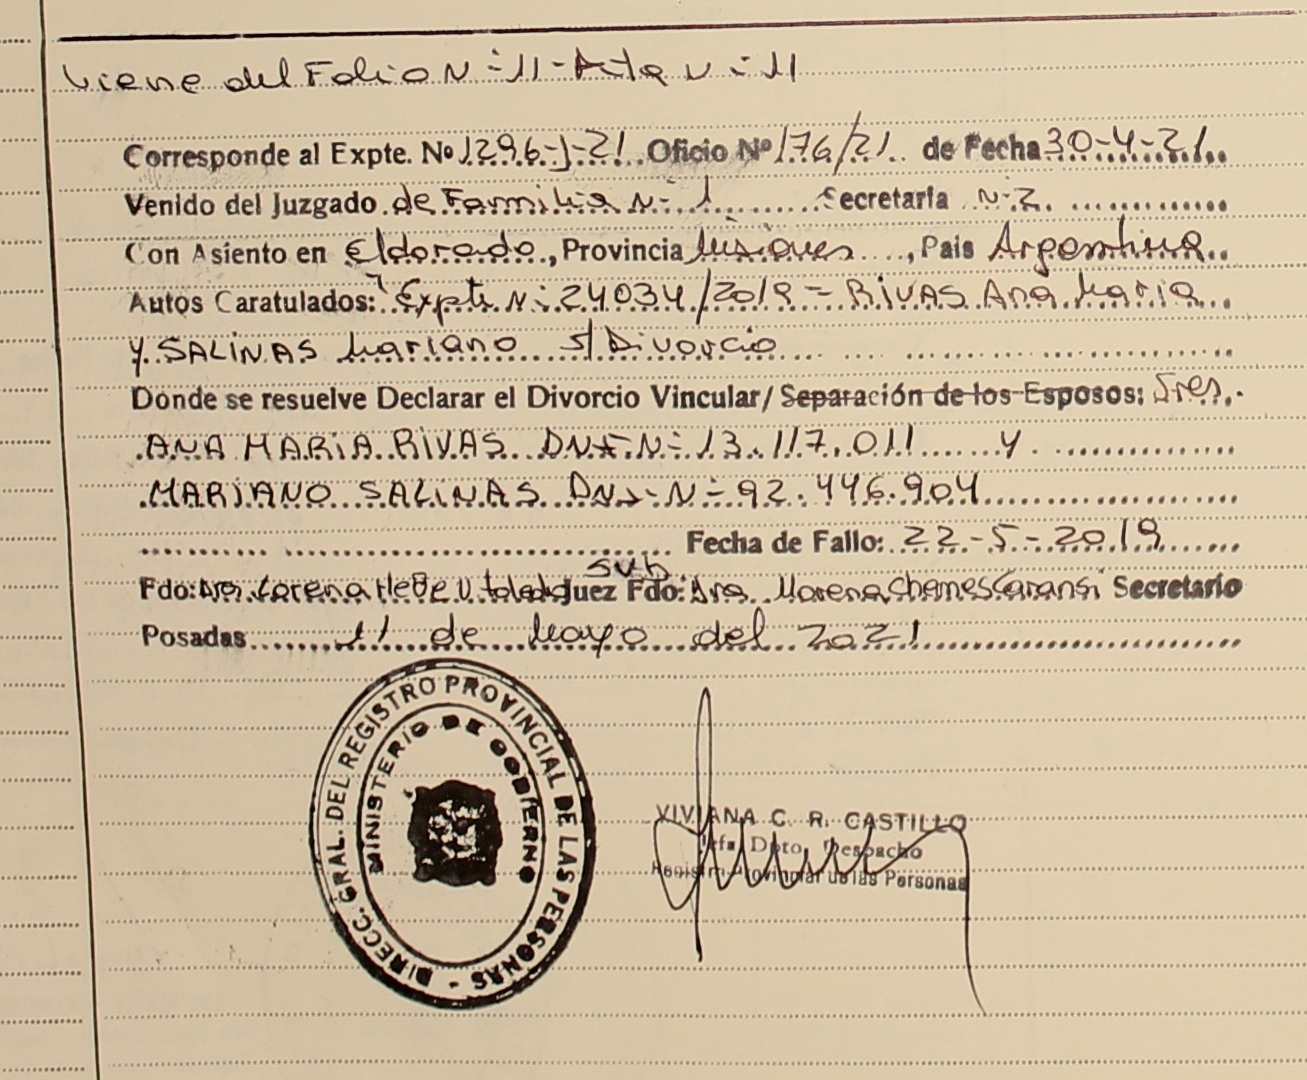 Viene del Folio N=11-Acta N=11
Corresponde al Expte. Nº 1296-J-21 Oficio Nº 176/21 de Fecha 30-4-21
Venido del Juzgado de Familia N=1 Secretaría N=2
Con Asiento en Eldorado, Provincia Misiones, País Argentina
Autos Caratulados: "Expte N=24034/2019 = RIVAS Ana María
y SALINAS Mariano s/ Divorcio
Donde se resuelve Declarar el Divorcio Vincular/ Separación de los Esposos: Sres.
ANA MARIA RIVAS DNI-N=13.117.011 y
MARIANO SALINAS DNI-N=92.446.904
Fecha de Fallo: 22-5-2019
Fdo: Dra. Lorena Hebe V. Toledo Juez Fdo: Dra. Morena Chemes Caransi Sub Secretario
Posadas 11 de Mayo del 2021
DIRECC. GRAL. DEL REGISTRO PROVINCIAL DE LAS PERSONAS -
MINISTERIO DE GOBIERNO
VIVIANA C. R. CASTILLO
Jefa Dpto. Despacho
Registro Provincial de las Personas